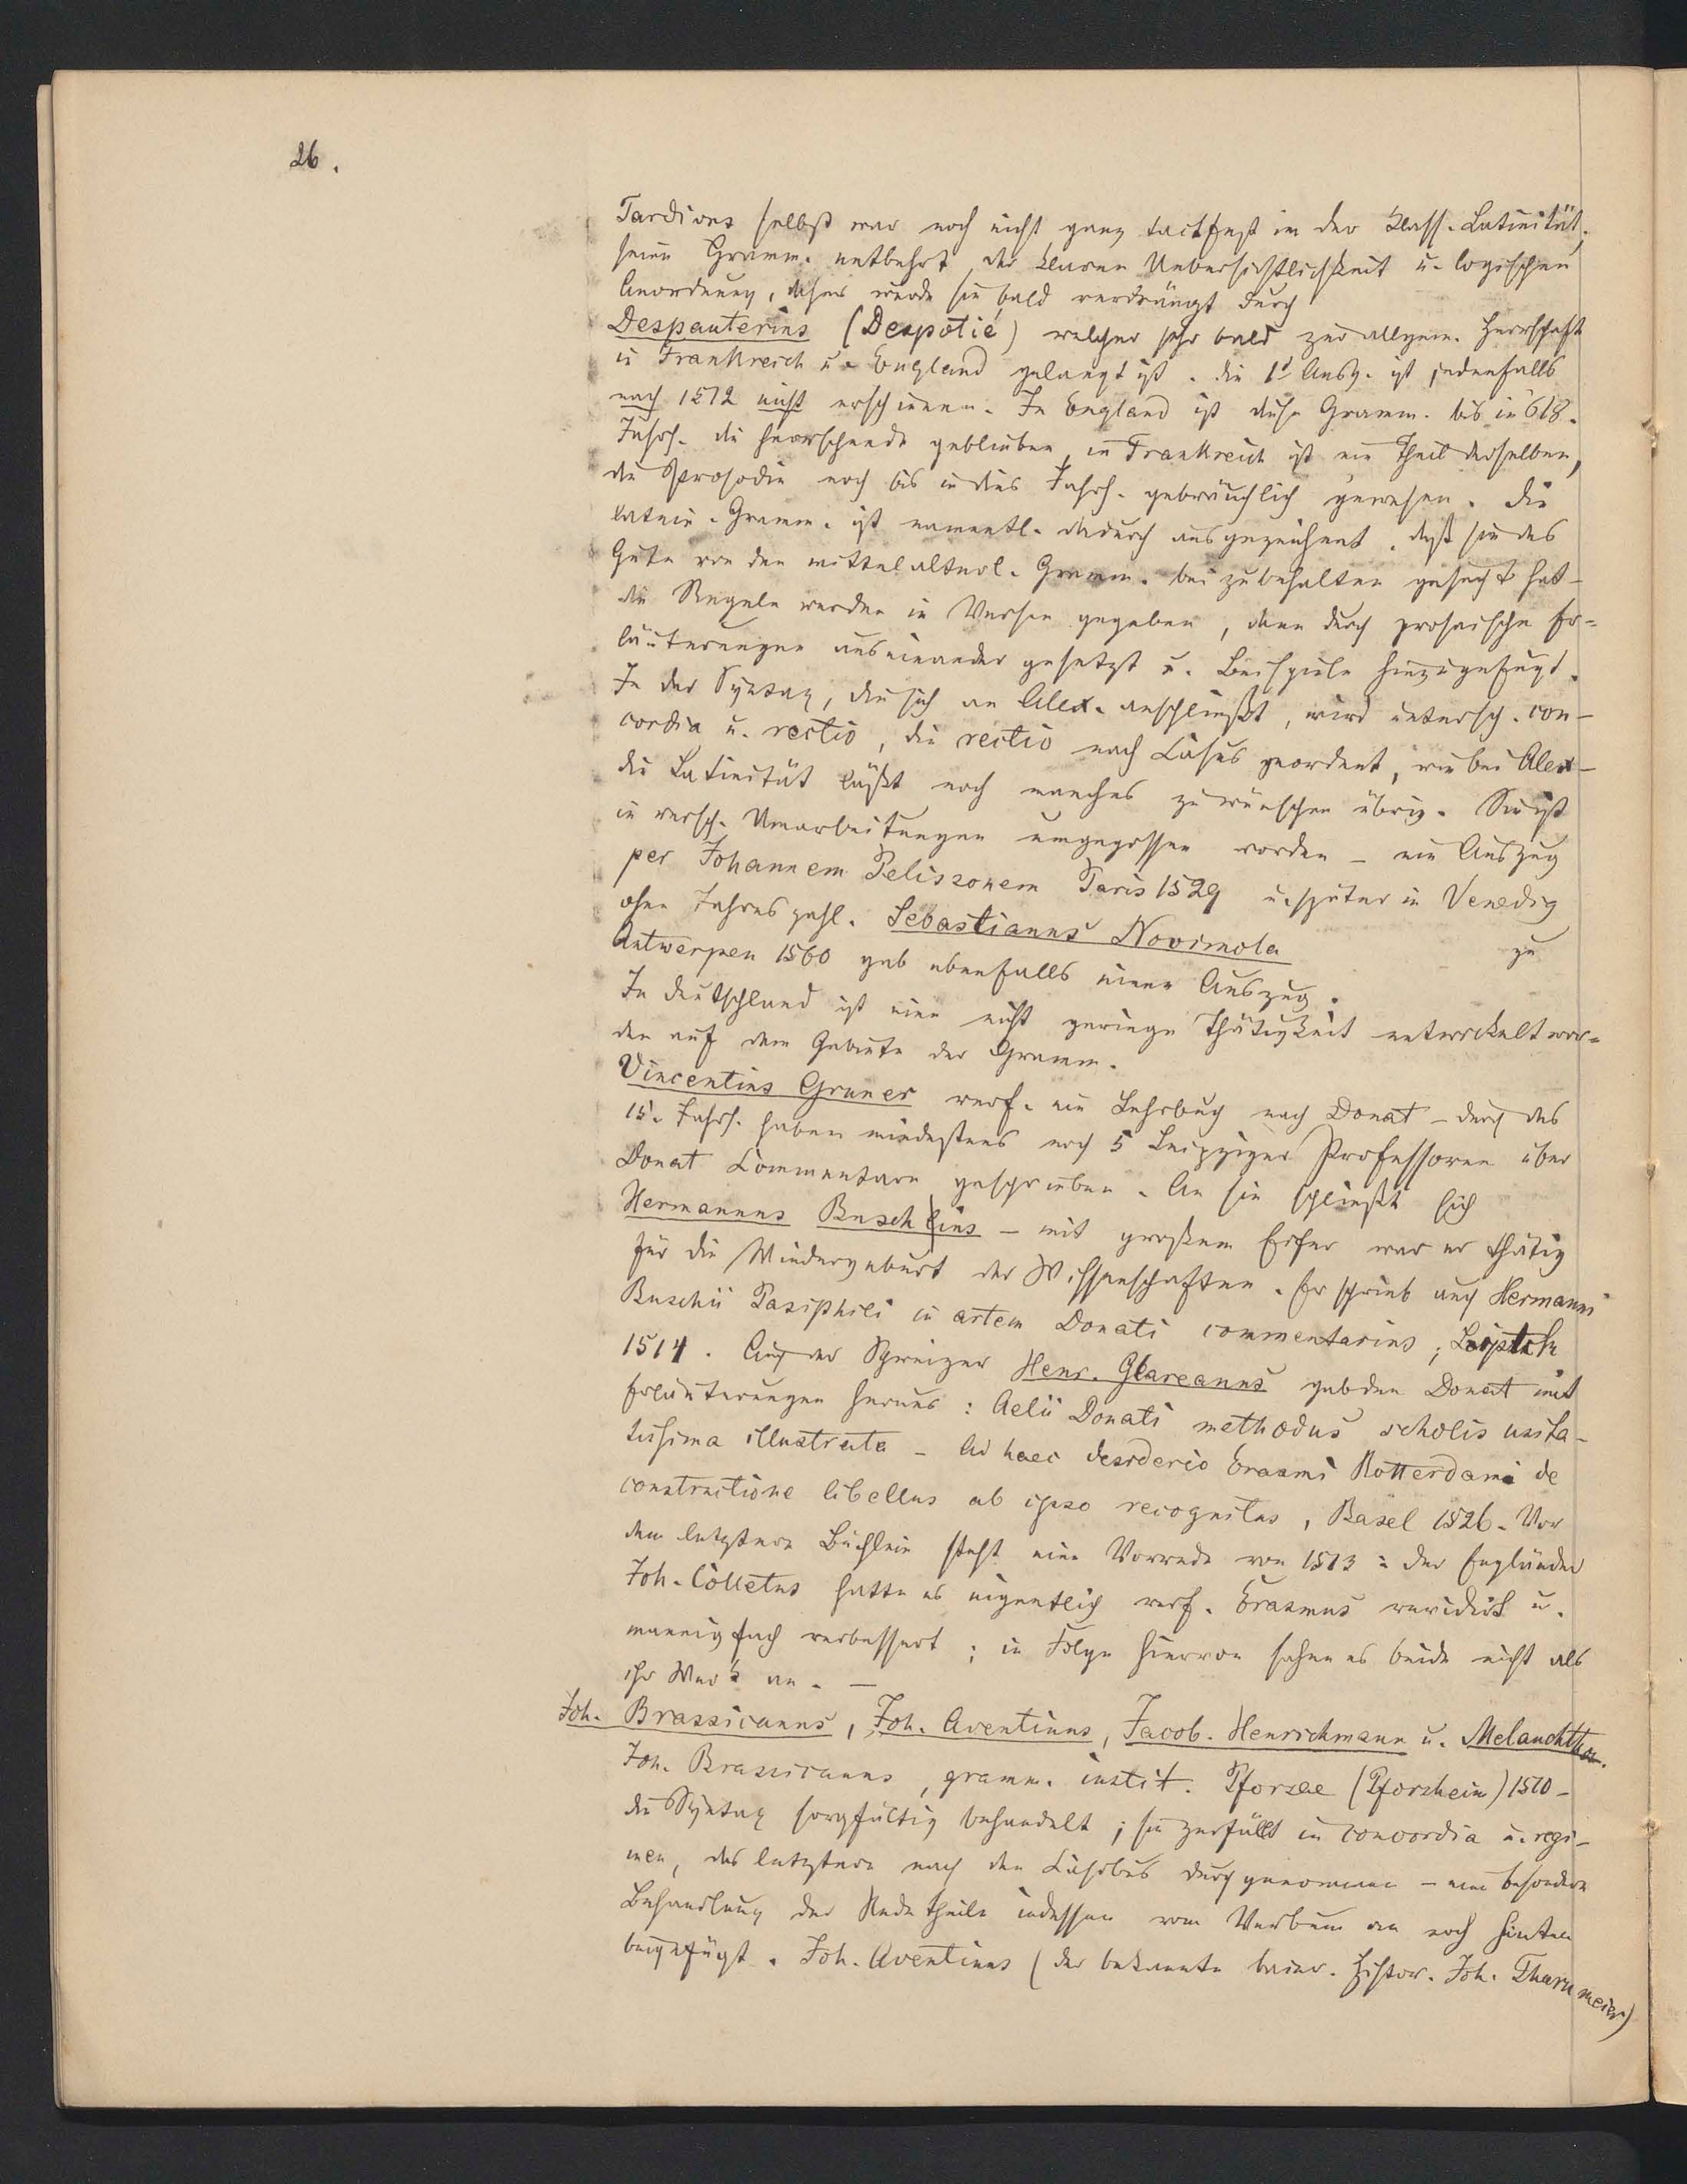 26.
Tardivus selbst war noch nicht ganz tactfest in der klass. Latinität,
seine Gramm. entbehrt der klaren Uebersichtlichkeit u. logischen
Anordnung, daher wurde sie bald verdrängt durch
Despauterius (Despotié) welcher sehr bald zur allgem. Herrschaft
in Frankreich u. England gelangt ist. die 1t Ausg. ist jedenfalls
nach 1512 nicht erschienen. In England ist diese Gramm. bis ins 18.
Jahrh. die herrschende geblieben, in Frankreich ist ein Theil derselben,
die Prosodie noch bis in dies Jahrh. gebräuchlich gewesen. die
latein. Gramm. ist namentl. dadurch ausgezeichnet, daß sie das
Gute von den mittelalterl. Gramm. bei zubehalten gesucht hat –
die Regeln werden in Versen gegeben, dann durch prosaische Er=
läuterungen auseinander gesetzt u. Beispiele hinzugefügt.
In der Syntax, die sich an Alex. anschließt, wird untersch. con–
cordia u. rectio, die rectio nach Casus geordnet, wie bei Alex –
die Latinität läßt noch manches zu wünschen übrig. Sie ist
in versch. Umarbeitungen umgegossen worden – ein Auszug
per Johannem Pelissonem Paris 1529 u. später in Venedig
ohne Jahreszahl. Sebastianus Novimola zu
Antwerpen 1560 gab ebenfalls einen Auszug.
In Deutschland ist eine nicht geringe Thätigkeit entwickelt wor=
den auf dem Gebiete der Gramm.
Vincentius Gruner verf. ein Lehrbuch nach Donat – durch das
15. Jahrh. haben mindestens noch 5 Leipziger Professoren über
Donat Commentare geschrieben. An sie schließt sich
Hermannus Buschius – mit großem Eifer war er thätig
für die Wiedergeburt der Wissenschaften. Er schrieb auch Hermanni
Buschii Pasiphili in artem Donati commentarius;
1514. Auch der Schweizer Henr. Glareanus gab den Donat mit
Erläuterungen heraus: Aelii Donati methodus scholis usita–
tissima illustrata – Ad haec desiderio Erasmi Rotterdami de
constructione libellus ab ipso recognitus, Basel 1526. Vor
dem letztern Büchlein steht eine Vorrede von 1513: der Engländer
Joh. Colletus hatte es eigentlich verf. Erasmus revidirt u.
mannigfach verbessert; in Folge hiervon sahen es beide nicht als
ihr Werk an. –
Joh. Brassicanus, Joh. Aventinus, Jacob. Henrichmann u. Melanchthon.
Joh. Brassicanus, gramm. instit. Pforzae (Pforzheim) 1510 –
die Syntax sorgfältig behandelt; sie zerfällt in concordia u. regi–
men, das letztere nach den Casibus durchgenommen – eine besondere
Behandlung der Redetheile indessen vom Verbum an noch hinten
beigefügt. Joh. Aventinus (der bekannte baier. Histor. Joh. Thurnmeier)